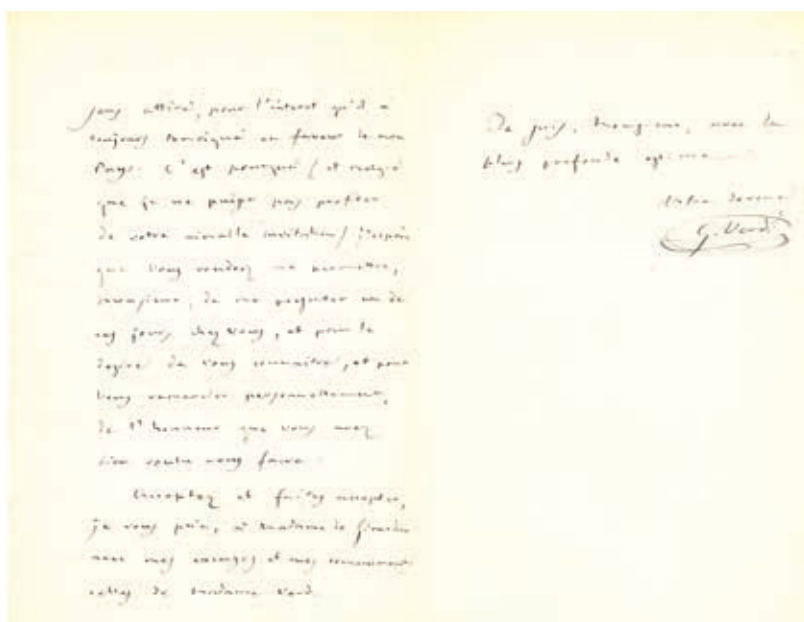 pour l'interet qu'il a
toujours temoigné en faveur de mon
Pays. C'est pourquoi (et malgré
que je ne puipe pas profiter
de votre aimable invitation) J'espère
que Vous voudrez me permettre,
monsieur, de me presenter un de
ces jours chez Vous, et pour le
desire de Vous connaitre, et pour
Vous remercier personnellement,
de l'honneur que vous avez
bien voulu nous faire.
Acceptez et faites accepter,
je vous prie, à Madame de Girardin
avec mes
celles de Madame Verdi
Je suis, monsieur, avec la
plus profonde estime
Votre
G. Verdi